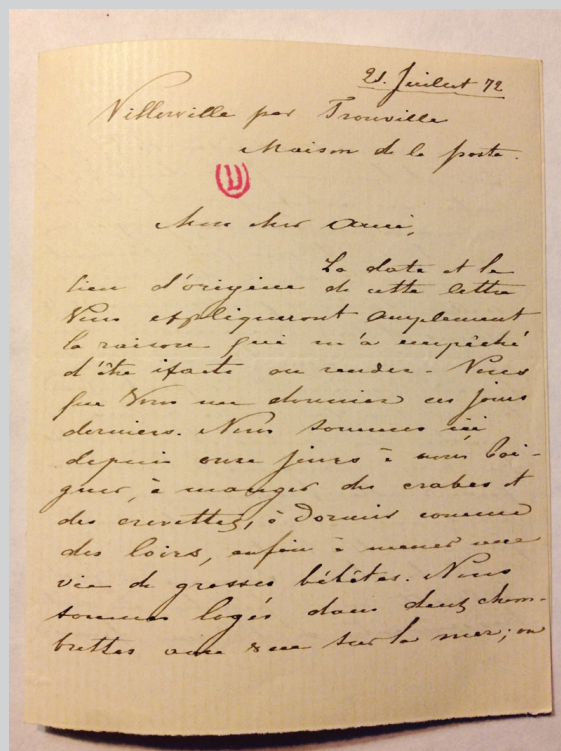 21. Juillet 72
Villerville par Trouville
Maison de la poste.
Mon cher Ami,
La date et le
lieu d'origine de cette lettre
Vous expliqueront amplement
la raison qui m'a empêché
d'être exacte au rendez-Vous
que Vous me donniez ces jours
derniers. Nous sommes ici
depuis onze jours à nous bai-
gner, à manger des crabes et
des crevettes, à Dormir comme
des loirs, enfin à mener une
vie de grosses bêbêtes. Nous
sommes logés dans deux cham-
brettes avec vue sur la mer; on